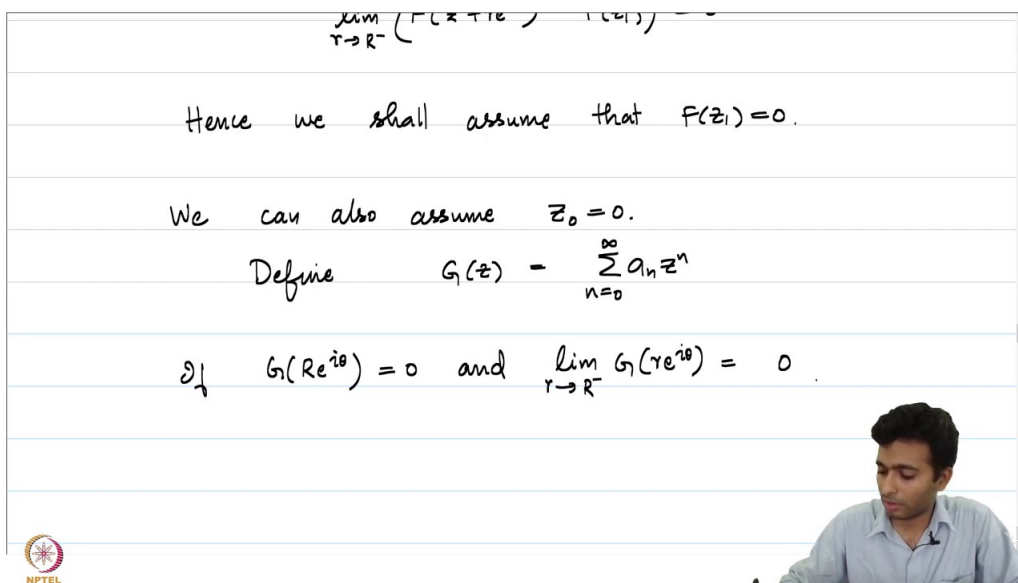 lim
r→R⁻
Hence we shall assume that F(z₁) = 0.
We can also assume z₀ = 0.
Define G(z) = ∑_{n=0}^{∞} aₙ zⁿ
If G(Re^{iθ}) = 0 and lim_{r→R⁻} G(re^{iθ}) = 0.
NPTEL